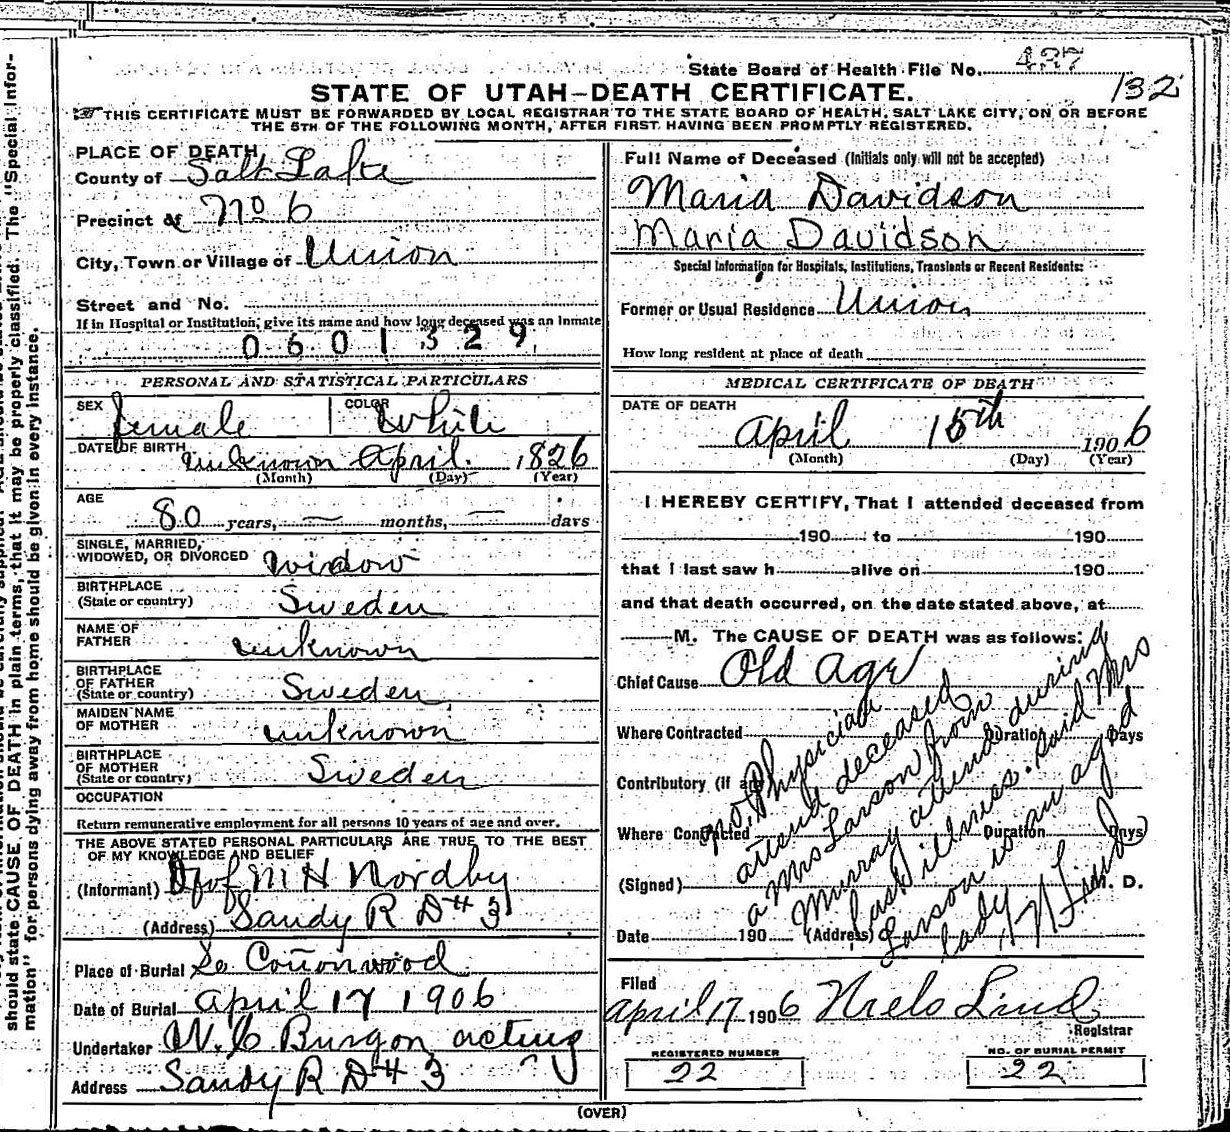 State Board of Health File No. 437
132
STATE OF UTAH-DEATH CERTIFICATE.
THIS CERTIFICATE MUST BE FORWARDED BY LOCAL REGISTRAR TO THE STATE BOARD OF HEALTH, SALT LAKE CITY, ON OR BEFORE
THE 5TH OF THE FOLLOWING MONTH, AFTER FIRST HAVING BEEN PROMPTLY REGISTERED.
PLACE OF DEATH
County of Salt Lake
Precinct of No 6
City, Town or Village of Union
Street and No.
If in Hospital or Institution, give its name and how long deceased was an Inmate
0601329
PERSONAL AND STATISTICAL PARTICULARS
SEX female COLOR White
DATE OF BIRTH unknown April 1826
(Month) (Day) (Year)
AGE
80 years, — months, — days
SINGLE, MARRIED,
WIDOWED, OR DIVORCED widow
BIRTHPLACE
(State or country) Sweden
NAME OF
FATHER unknown
BIRTHPLACE
OF FATHER
(State or country) Sweden
MAIDEN NAME
OF MOTHER unknown
BIRTHPLACE
OF MOTHER
(State or country) Sweden
OCCUPATION
Return remunerative employment for all persons 10 years of age and over.
THE ABOVE STATED PERSONAL PARTICULARS ARE TRUE TO THE BEST
OF MY KNOWLEDGE AND BELIEF
(Informant) M H Nordby
(Address) Sandy R D # 3
Place of Burial So Cottonwood
Date of Burial April 17 1906
Undertaker W. C Burgon acting
Address Sandy R D # 3
Full Name of Deceased (Initials only will not be accepted)
Maria Davidson
Maria Davidson
Special Information for Hospitals, Institutions, Transients or Recent Residents:
Former or Usual Residence Union
How long resident at place of death
MEDICAL CERTIFICATE OF DEATH
DATE OF DEATH
April 15th 1906
(Month) (Day) (Year)
I HEREBY CERTIFY, That I attended deceased from
190 to 190
that I last saw h alive on 190
and that death occurred, on the date stated above, at
M. The CAUSE OF DEATH was as follows:
Chief Cause Old Age
Where Contracted Duration Days
Contributory (if any)
Where Contracted Duration Days
(Signed) M. D.
Date 190 (Address)
no Physician
attend deceased
a Mrs Larson from
Murray attend during
last illness. said Mrs
Larson is an aged
lady N Lind
Filed
April 17 1906 Niels Lind
Registrar
REGISTERED NUMBER
22
NO. OF BURIAL PERMIT
22
(OVER)
should state CAUSE OF DEATH in plain terms, that it may be properly classified. The "Special Infor-
mation" for persons dying away from home should be given in every instance.